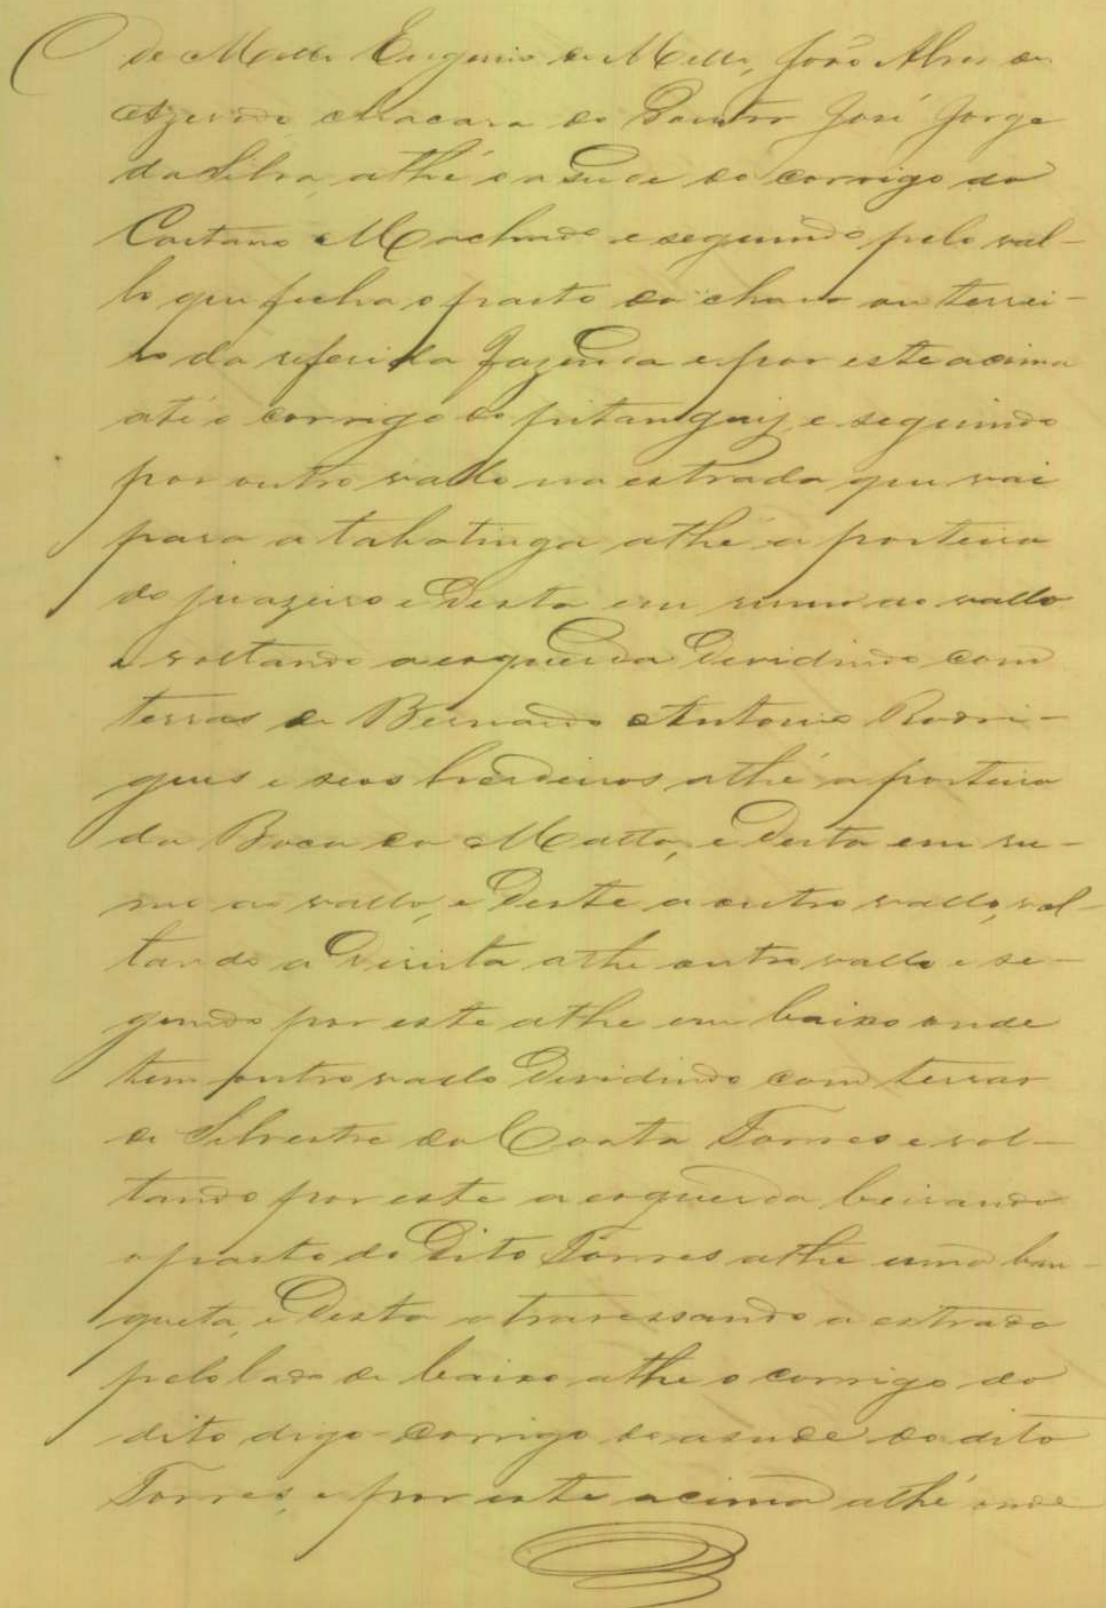 de Mello Eugenio de Mello, João Alves de
Azevedo, chacara do Doutor José Jorge
da Silva, athé o asude do corrigo do
Caetano Machado e seguindo pelo val-
lo que fecha o pasto da chave ou terrei-
ro da referida fazenda e por este acima
até o corrigo do pitanguiz, e seguindo
por outro vallo na estrada que vai
para a tabatinga athé a porteira
do juazeiro e desta em rumo ao vallo
e voltando a esquerda devidindo com
terras de Bernardo Antonio Rodri-
gues e seos herdeiros athé a porteira
da Boca do Matto, e desta em ru-
mo ao vallo, e deste a outro vallo, vol-
tando a direita athe outro vallo e se-
guindo por este athe em baixo onde
tem outro vallo devidindo com terras
de Silvestre da Costa Torres e vol-
tando por este a esquerda beirando
o pasto do dito Torres athe uma ban-
queta, e desta atravessando a estrada
pelo lado de baixo athe o corrigo do
dito digo corrigo do asude do dito
Torres, e por este acima athé onde